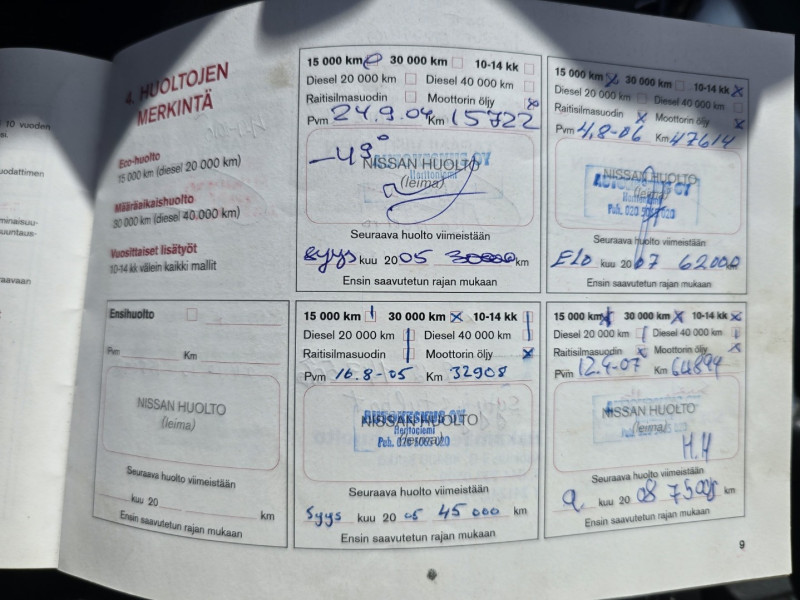 10 vuoden
si.
uodattimen
minaisuu-
uuntaus-
araavaan
4. HUOLTOJEN
MERKINTÄ
Eco-huolto
15 000 km (diesel 20 000 km)
Määräaikaishuolto
30 000 km (diesel 40.000 km)
Vuosittaiset lisätyöt
10-14 kk välein kaikki mallit
15 000 km 30 000 km 10-14 kk
Diesel 20 000 km Diesel 40 000 km
Raitisilmasuodin Moottorin öljy
Pvm 24.9.04 Km 15722
NISSAN HUOLTO
Herttoniemi
(leima)
Seuraava huolto viimeistään
syys kuu 2005 30000 km
Ensin saavutetun rajan mukaan
15 000 km 30 000 km 10-14 kk
Diesel 20 000 km Diesel 40 000 km
Raitisilmasuodin Moottorin öljy
Pvm 4,8-06 Km 47614
NISSAN HUOLTO
(leima)
Seuraava huolto viimeistään
Elo kuu 2007 62000 km
Ensin saavutetun rajan mukaan
Ensihuolto
Pvm Km
NISSAN HUOLTO
(leima)
Seuraava huolto viimeistään
kuu 20 km
Ensin saavutetun rajan mukaan
15 000 km 30 000 km 10-14 kk
Diesel 20 000 km Diesel 40 000 km
Raitisilmasuodin Moottorin öljy
Pvm 16.8-05 Km 32908
NISSAN HUOLTO
Herttoniemi
(leima)
Seuraava huolto viimeistään
Syys kuu 2005 45000 km
Ensin saavutetun rajan mukaan
15 000 km 30 000 km 10-14 kk
Diesel 20 000 km Diesel 40 000 km
Raitisilmasuodin Moottorin öljy
Pvm 12.4-07 Km 64894
NISSAN HUOLTO
(leima)
M.H
Seuraava huolto viimeistään
kuu 2008 km
Ensin saavutetun rajan mukaan
9